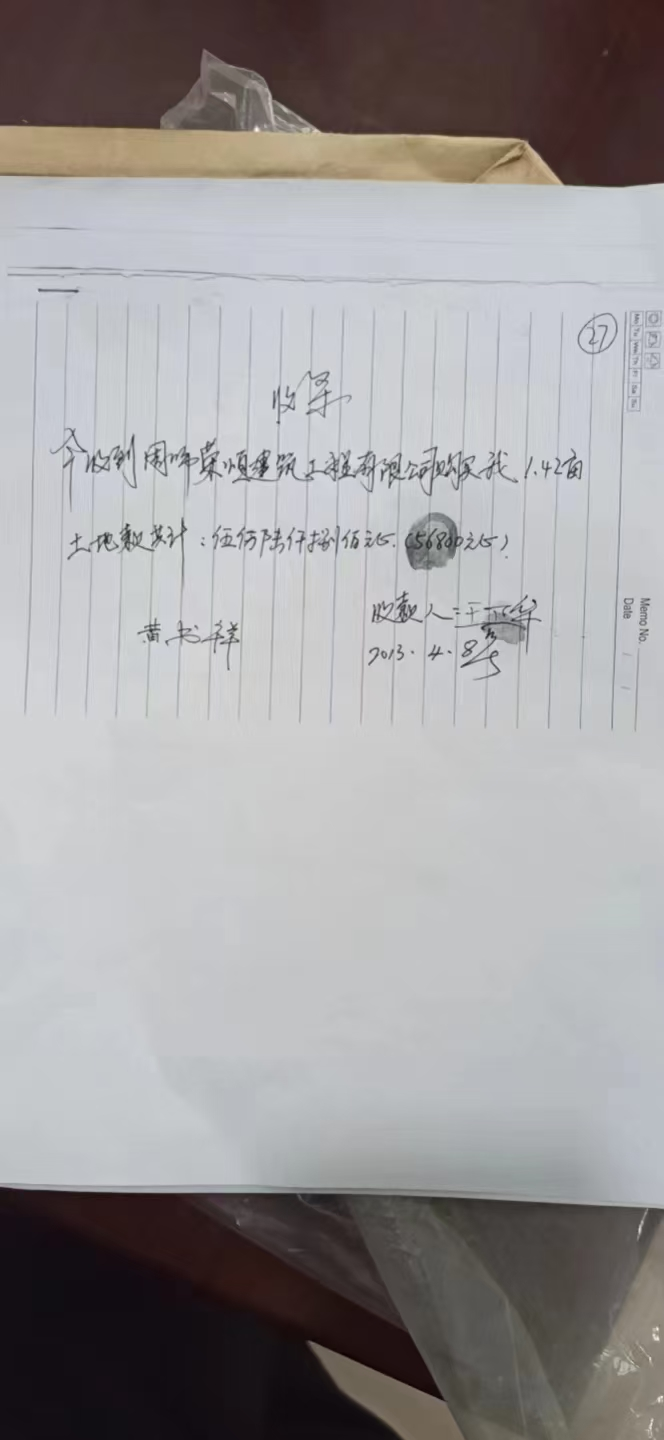 27
收条
今收到周师荣恒建筑工程有限公司购买我1.42亩
土地款共计：伍仟陆仟捌佰元正.(56800元正)
收款人:
黄书祥
2013.4.8号
Memo No.
Date
Mo Tu We Th Fr Sa Su